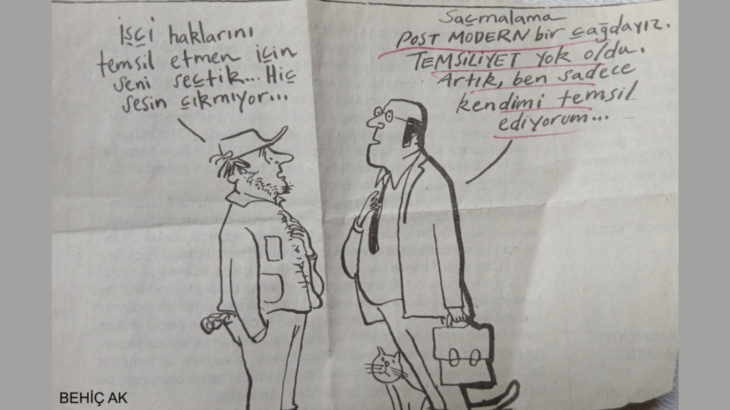 İŞÇİ haklarını
temsil etmen için
seni seçtik... Hiç
sesin çıkmıyor...
Saçmalama
POST MODERN bir çağdayız.
TEMSİLİYET YOK OLDU.
ARTIK, ben sadece
kendimi temsil
ediyorum...
BEHİÇ AK